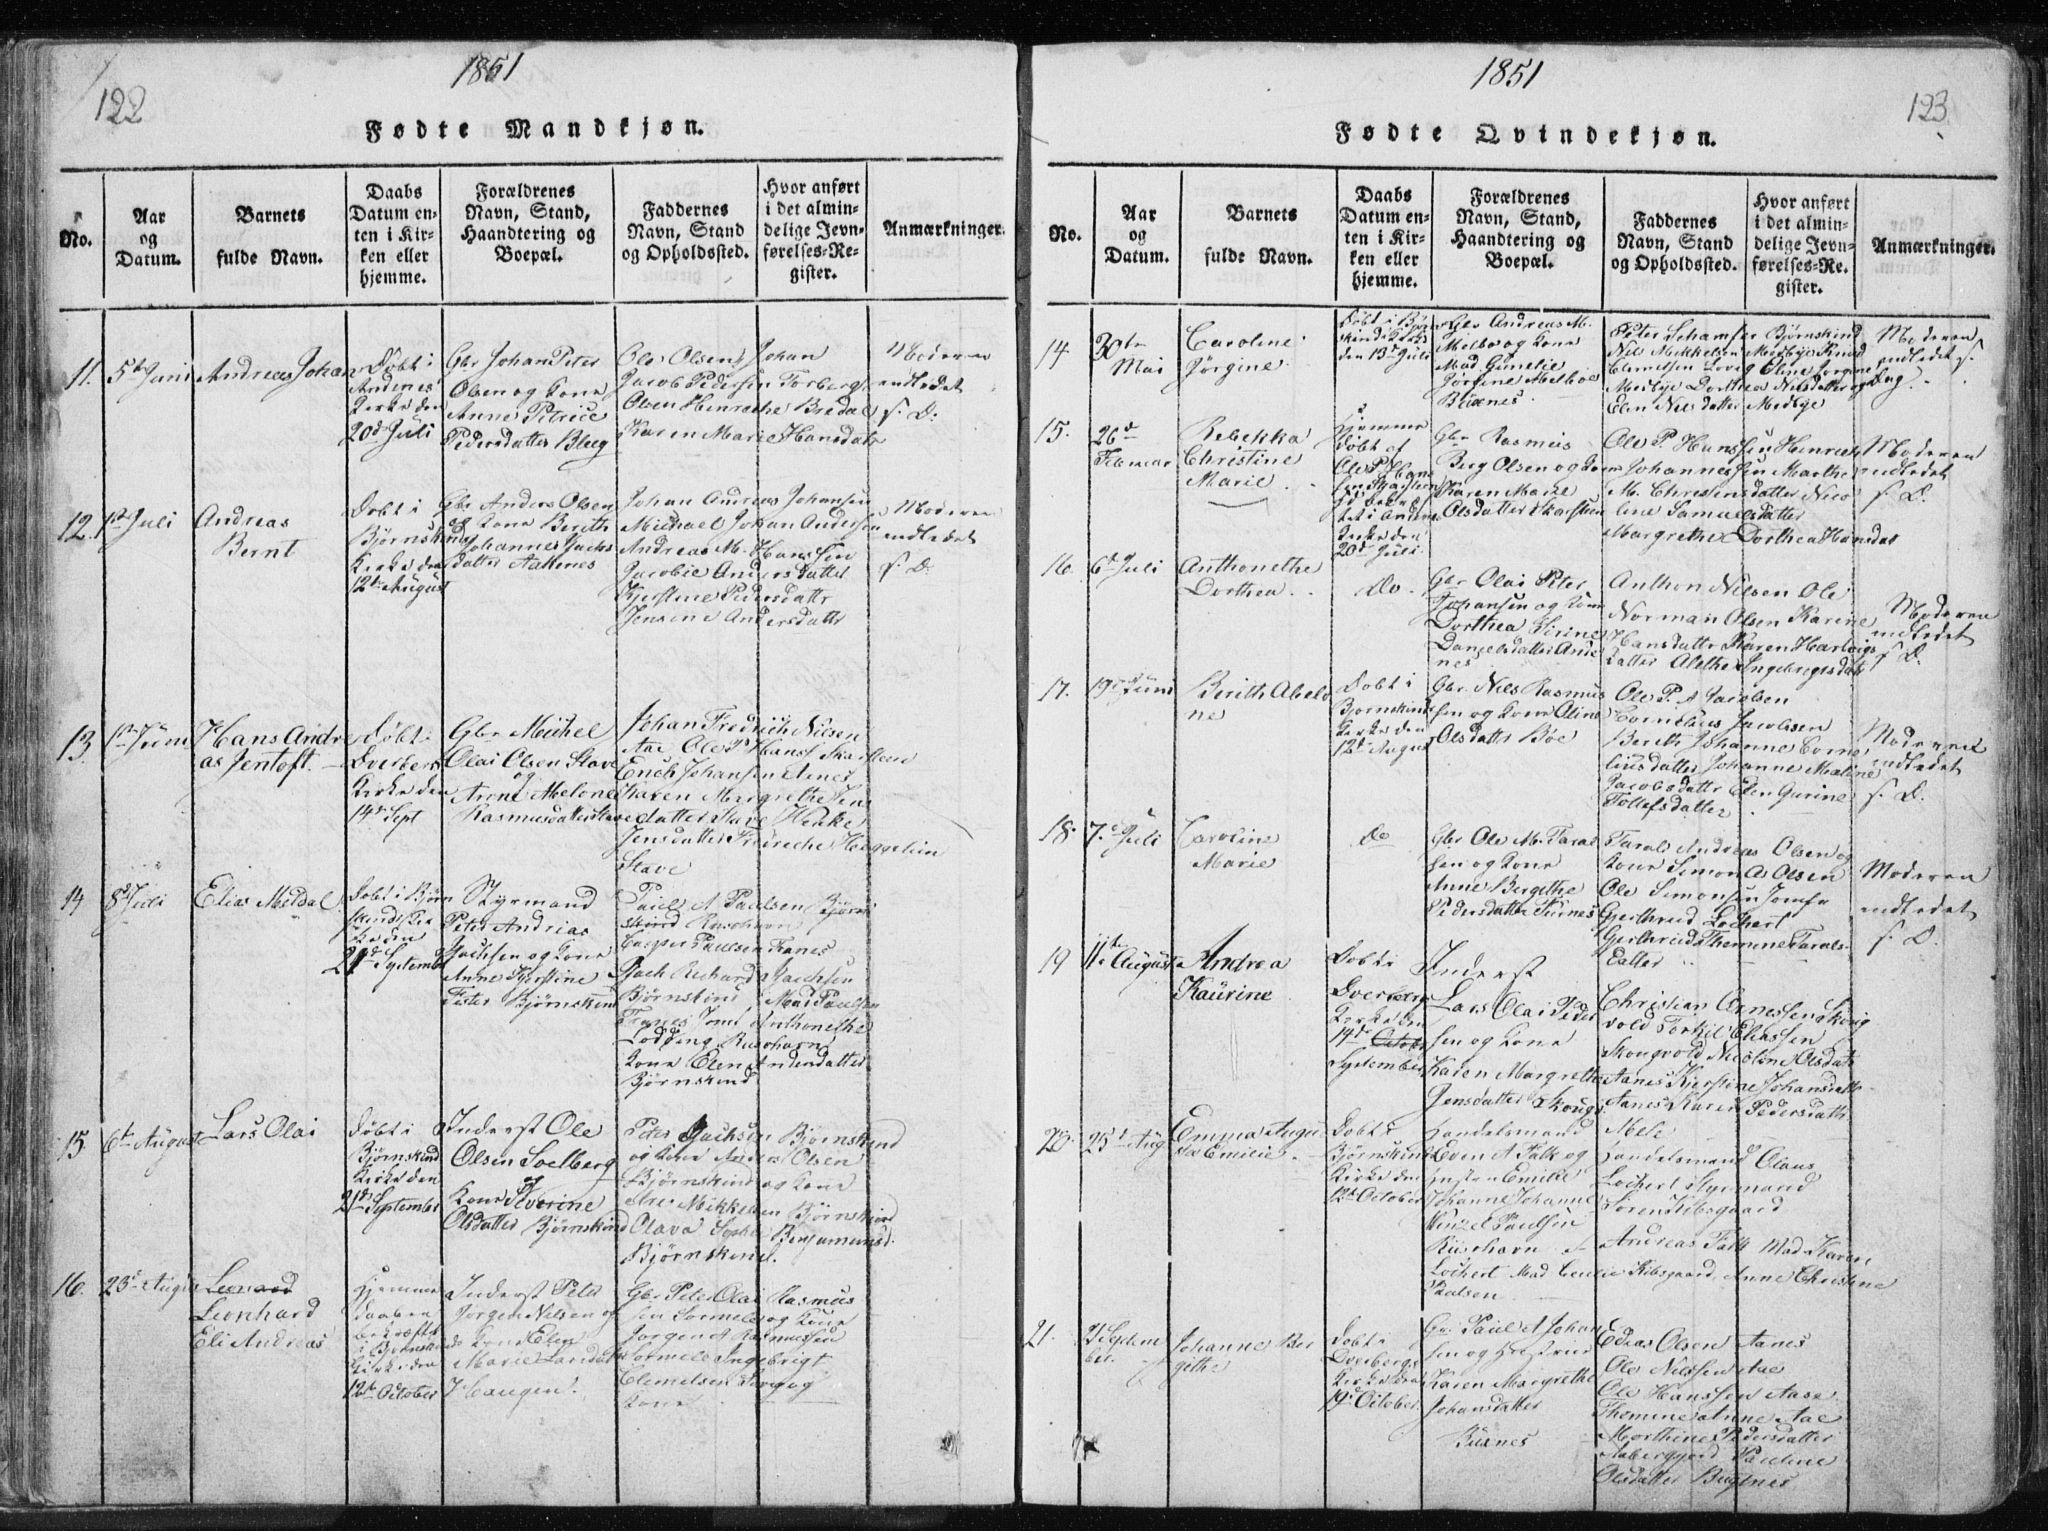 122
1851
Fødte Mandkjøn.
No.
Aar
og
Datum.
Barnets
fulde Navn.
Daabs
Datum en-
ten i Kir-
ken eller
hjemme.
Forældrenes
Navn, Stand,
Haandtering og
Boepæl.
Faddernes
Navn, Stand
og Opholdssted.
Hvor anført
i det almin-
delige Jevn-
førelses-Re-
gister.
Anmærkninger.
11.
5te Juni
Andreas Johan
Døbt i
Andenes
Kirke den
20de Juli
Gbr Johan Peter
Olsen og Kone
Anne Petrice
Pedersdatter Bleeg
Ole Olsen Johan
Jacob Pedersen Torberg
Olsen Henrethe Bredal
Karen Marie Hansdatr
Moderen
indledet
s. D.
12.
1ste Juli
Andreas
Bernt
Døbt i
Bjørnskind
Kirke den
12te August
Gbr Anders Olsen
og Kone Berith
Johannes Jachs
datter Aannes
Johan Andreas Johansen
Michael Johan Andersen
Andreas M. Hanssen
Jacobie Andersdatter
Kjerstine Pedersdattr
Jensine Andersdattr
Moderen
indledet
s. D.
13.
1ste Juni
Hans Andre
as Jentoft.
Døbt i
Dverberg
Kirke den
14de Sept
Gbr Michel
Olai Olsen Stave
og
Anne Melone
Rasmusdatter Stave
Johan Fredrich Nilsen
Aae Ole P. Hanss Skarsteen
Erich Johansen Aanes
Karen Margrethe Jens
datter Stave
Jensdatter Fredreche Heggelun
Stave
14
8de Juli
Elias Meldal
Døbt i Bjørn
skinds Kir
ke den
21de Septemb
Styrmand
Peter Andrias
Jachsen og Kone
Anne Kjerstine
Fester Bjørnskind
Paul A Paulsen Bjørn
skind Risohavn
Casper Paulsen Tranes
Jach Richard Jachsen
Bjørnskind Mad Paulsen
Tranes Jomf Anthonethe
Lodding Risohavn
Kone Elen Andersdatter
Bjørnskind
15.
6te August
Lars Olai
Døbt i
Bjørnskind
Kirke den
21de September
Inderst Ole
Olsen Soelberg
og
Kone Severine
Olsdatter Bjørnskind
Peter Jachsen Bjørnskind
og Kone Anders Olsen
Bjørnskind og Kone
Mikkelsen Bjørnskind
Olava Sophie Benjaminsd.
Bjørnskind.
16.
23de August
Leonard
Leonhard
Eli Andreas
Hjemme
daaben
bekræftet
i Bjørnskind
Kirke den
12te October
Inderst Peter
Jørgen Nilsen og
Kone Elen
Marie Larsdat
Haugen.
Gbr Peter Olai Rasmus
sen Sormele og Kone
Jørgen A Rasmussen
Sormele Ingebrigt
Clemetsen og
Kone
123
1851
Fødte Qvindekjøn.
No.
Aar
og
Datum.
Barnets
fulde Navn.
Daabs
Datum en-
ten i Kir-
ken eller
hjemme.
Forældrenes
Navn, Stand,
Haandtering og
Boepæl.
Faddernes
Navn, Stand
og Opholdssted.
Hvor anført
i det almin-
delige Jevn-
førelses-Re-
gister.
Anmærkninger.
14
30te
Mai
Caroline
Jørgine
Døbt i Bjørn
skinds Kirke
den 13de Juli
Gbr Andreas M.
Melboe og Kone
Mad Gunelie
Jørgine Melboe
Buxnes
Peter Schamfer Bjørnskind
Nils Mikkelsen Medbye Knud
Clemetsen Eline Jørgine
Medbye Dorthea Nilsdatter og
Elen Nilsdatter Medbye
Moderen
indledet s.
Dag.
15.
26de
Februar
Rebekka
Christine
Marie
Hjemme
døbt af
Ole P. Hans
sen Skarsteen
og bekræf
tet i Andenes
Kirke den
20de Juli
Gbr Rasmus
Berg Olsen og Kone
Karen Marie
Olsdatter Skarsteen
Ole P. Hanssen Henrich
Johannessen Marthe
M. Christensdatter Nico
line Samuelsdatter
Margrethe Dorthea Hansdat
Moderen
indledet
s. D.
16.
6te Juli
Anthonethe
Dorthea
Do.
Gbr Olai Peter
Johansen og Kone
Dorthea Serine
Danielsdatter Ande
nes
Anthon Nilsen Ole
Norman Olsen Karine
Hansdattr Karen Hartvigs
datter Alethe Ingebrigtsdatr
Moderen
indledet
s. D.
17.
19de Juni
Berith Abelo
ne
Døbt i
Bjørnskind
Kirke den
12te August
Gbr. Nils Rasmus
sen og Kone Oline
Olsdattr Böe
Ole P. A Jacobsen
Cornelius Jacobsen
Berith Johanne Corne
liusdatter Johanne Maline
Jacobsdattr Elen Gurine
Tollefsdatter
Moderen
indledet
s. D.
18.
7de Juli
Caroline
Marie
Do
Gbr Ole M. Taral
sen og Kone
Anne Bergithe
Pedersdatter
Tarals Andreas Olsen og
Kone Simon A Olsen
Ole Simonsen Jomfr
Gjerthrud Lochert
Gjerthrud Themine Tarals
datter
Moderen
indledet
s. D.
19
11te August
Andrea
Kaurine
Døbt i
Dverbergs
Kirke den
14de Octob
September
Inderst
Lars Olai Peder
sen og Kone
Karen Margrethe
Jensdatter Skougv
Christian Arnessen Skoug
vold Torkil Eliassen
Skougvold Nicoline Olsdatr
Aanes Kjerstine Johansdatr
Aanes Karen Pedersdatr
Mele
20.
25de Aug
Emma Augu
sta Emilie
Døbt i
Bjørnskind
Kirke den
12te October
Handelsmand
Even A Falk og
Hustru Emilie
Johanne Johanne
Paulsen
Risøehavn
Handelsmand Claus
Lochert Styrmand
Søren Kibsgaard
Andreas Falk Mad Karen
Lochert Mad Cecilie Kibsgaard Anne Christine
Paulsen
21.
Septem
ber.
Johanne Ber
githe
Døbt i
Dverbergs
Kirke den
19de October
Gbr Paul A Johan
sen og Hustrue
Karen Margrethe
Johansdatter
Buxnes
Edias Olsen Aanes
Ole Nilssen Aae
Ole Hanssen Aase
Themine Anne Aae
Morthine Pedersdatter
Aaberggjerd Pauline
Olsdatter Buxnes